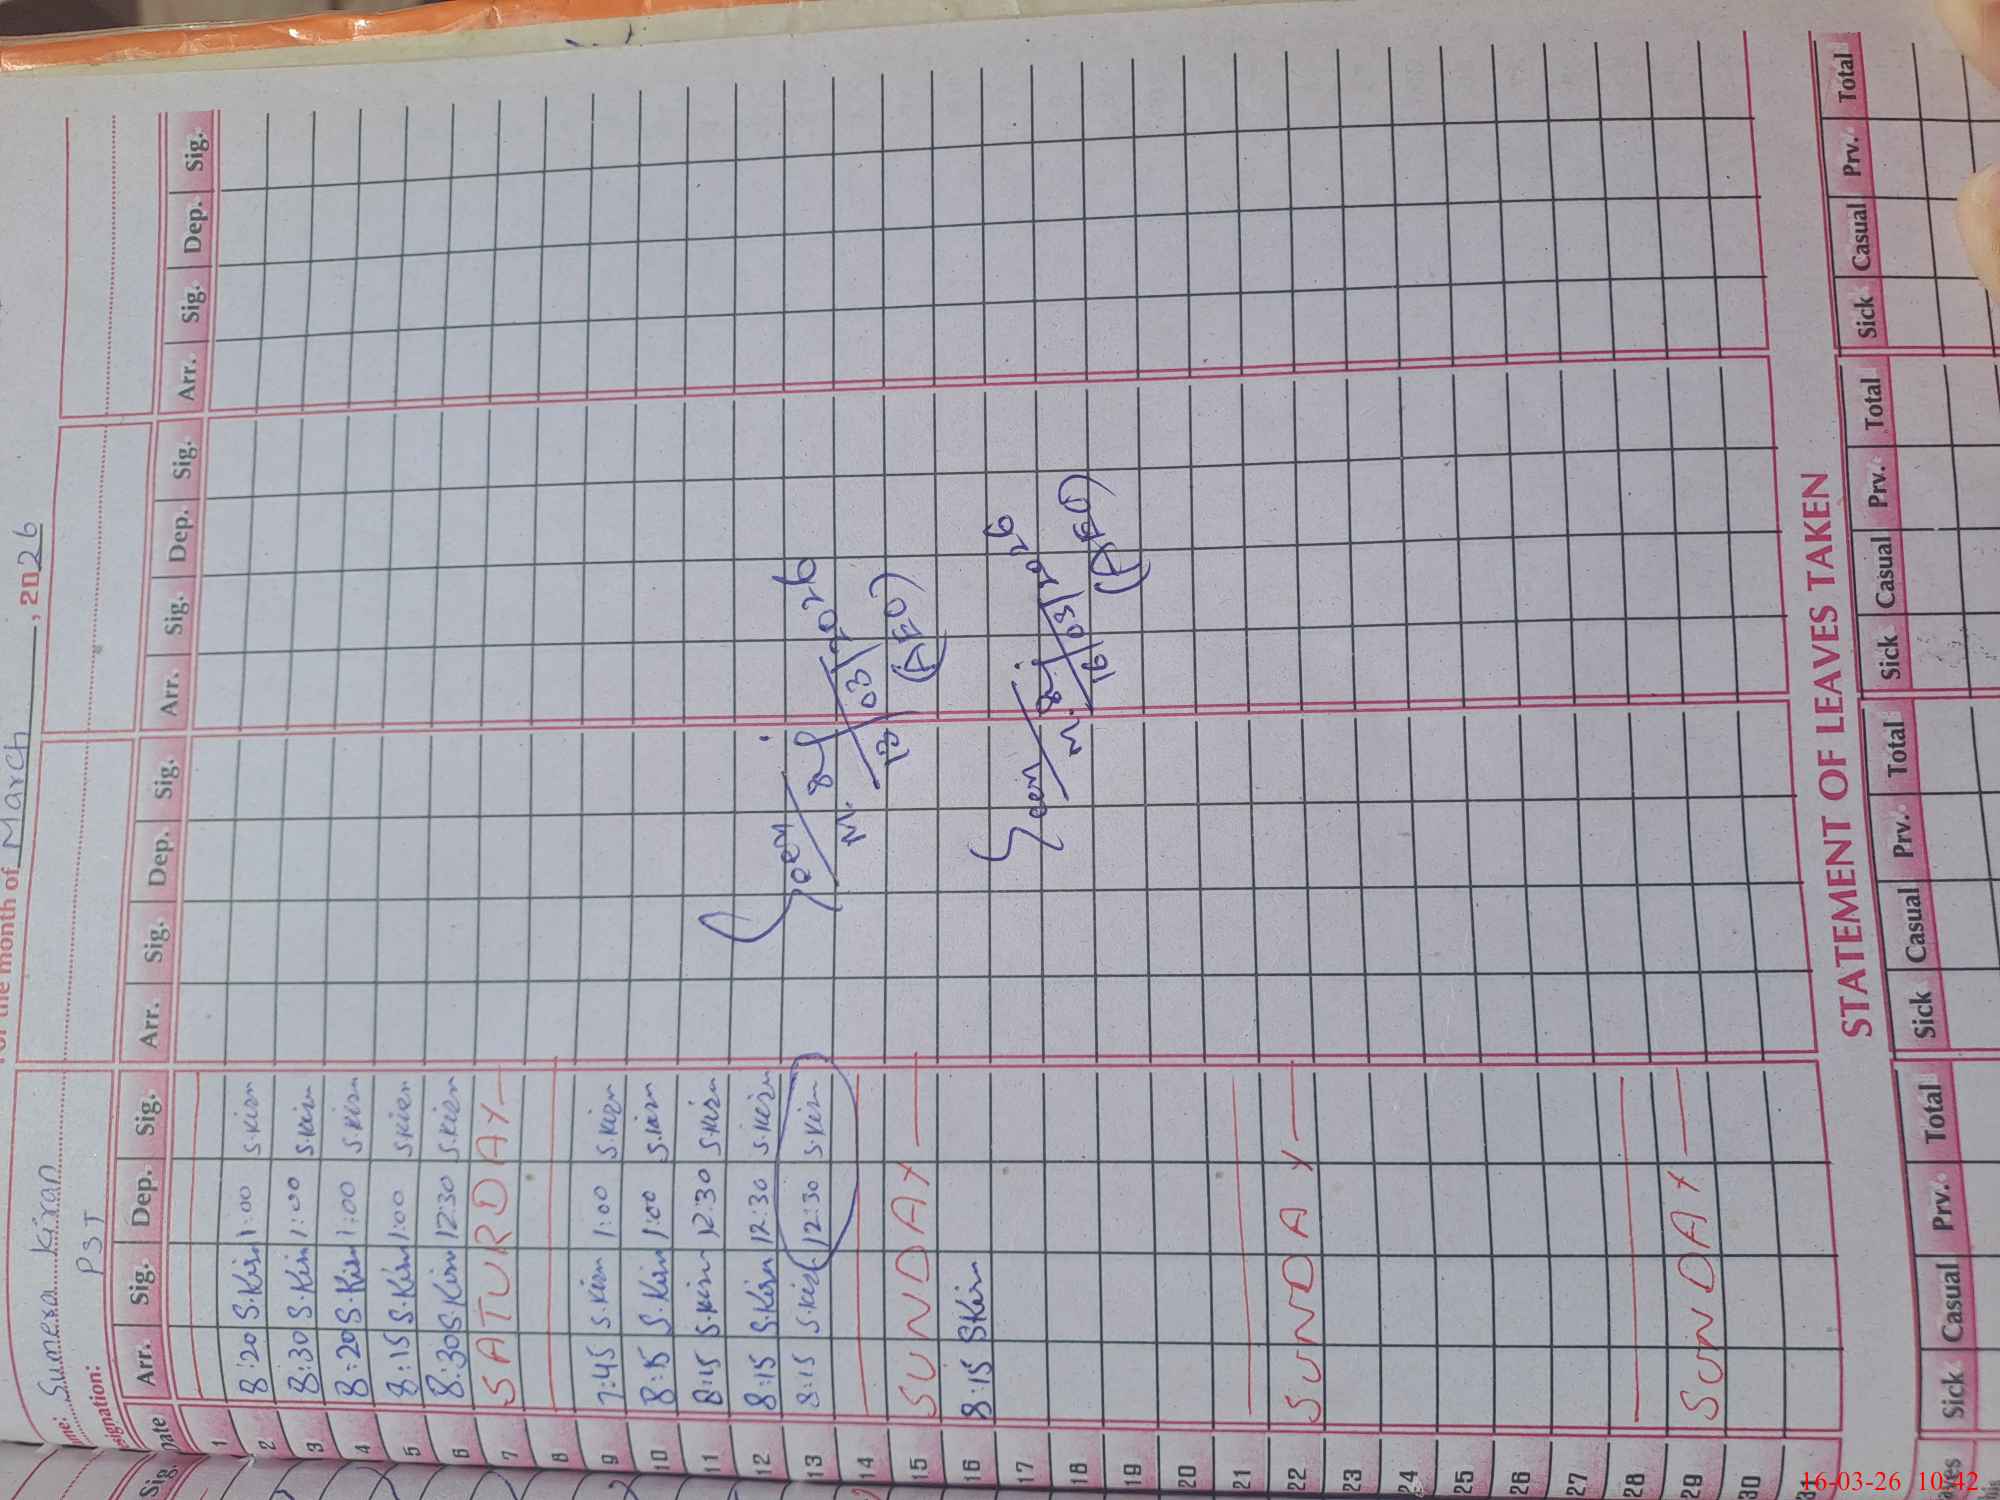 For the month of March, 2026
me: Sumera Kiran
signation: PST
Date Arr. Sig. Dep. Sig. Arr. Sig. Dep. Sig. Arr. Sig. Dep. Sig. Arr. Sig. Dep. Sig.
1
2 8:20 S.Kirn 1:00 S.Kirn
3 8:30 S.Kirn 1:00 S.Kirn
4 8:20 S.Kirn 1:00 S.Kirn
5 8:15 S.Kirn 1:00 S.Kirn
6 8:30 S.Kirn 12:30 S.Kirn
7 SATURDAY
8
9 7:45 S.Kirn 1:00 S.Kirn
10 8:15 S.Kirn 1:00 S.Kirn
11 8:15 S.Kirn 12:30 S.Kirn
12 8:15 S.Kirn 12:30 S.Kirn
13 8:15 S.Kirn 12:30 S.Kirn
Seen
13/03/2026
(AEO)
14
15 SUNDAY
16 8:15 S.Kirn
Seen
16/03/2026
(AEO)
17
18
19
20
21
22 SUNDAY
23
24
25
26
27
28
29 SUNDAY
30
STATEMENT OF LEAVES TAKEN
Sick Casual Prv. Total Sick Casual Prv. Total Sick Casual Prv. Total Sick Casual Prv. Total
Sig.
16-03-26 10:42